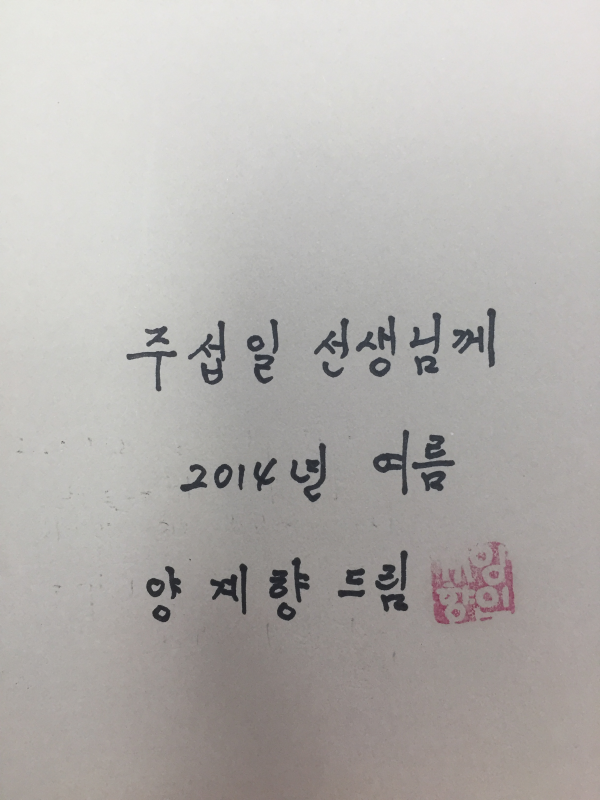 주섭일 선생님께
2014년 여름
양제향 드림